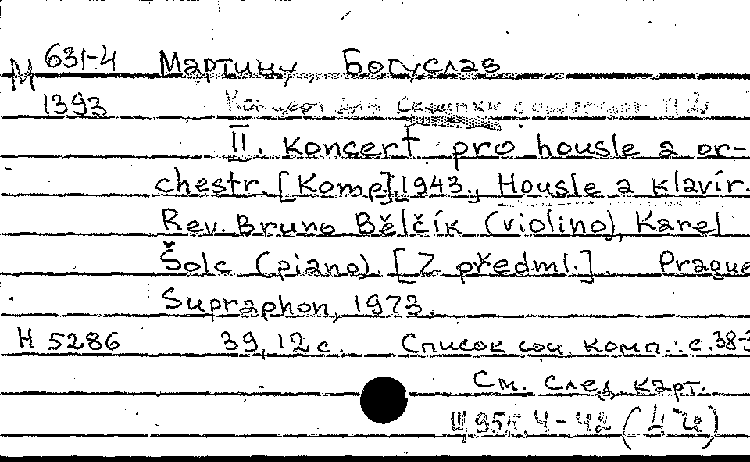 М 631-4 Мартину, Богуслав
1393 Концерт для скрипки с оркестром № 2
II. Koncert pro housle a or-
chestr. [Komp.] 1943., Housle a klavír.
Rev. Bruno Bělčík (violino), Karel
Šolc (piano). [Z předml.]. Prague
Supraphon, 1973.
Н 5286 39, 12 с. Список соч. комп.: с. 38-
См. след. карт.
Щ 954.4-42